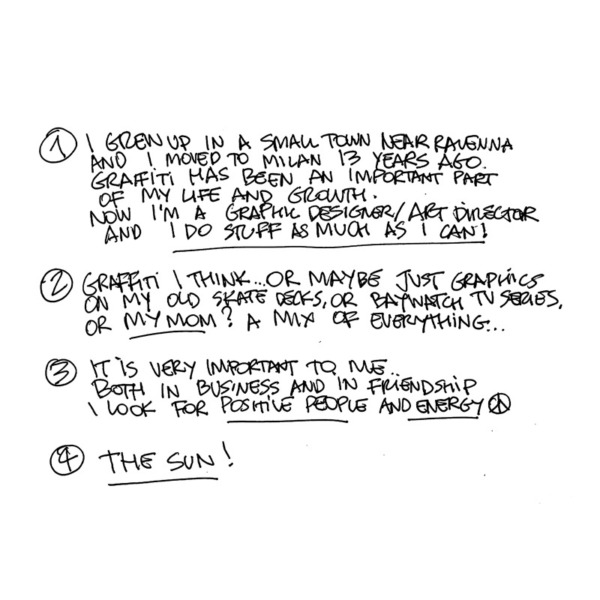 1 I GREW UP IN A SMALL TOWN NEAR RAVENNA
AND I MOVED TO MILAN 13 YEARS AGO.
GRAFFITI HAS BEEN AN IMPORTANT PART
OF MY LIFE AND GROWTH.
NOW I'M A GRAPHIC DESIGNER/ART DIRECTOR
AND I DO STUFF AS MUCH AS I CAN!
2 GRAFFITI I THINK...OR MAYBE JUST GRAPHICS
ON MY OLD SKATE DECKS, OR BAYWATCH TV SERIES,
OR MY MOM? A MIX OF EVERYTHING...
3 IT IS VERY IMPORTANT TO ME..
BOTH IN BUSINESS AND IN FRIENDSHIP
I LOOK FOR POSITIVE PEOPLE AND ENERGY ☮
4 THE SUN!